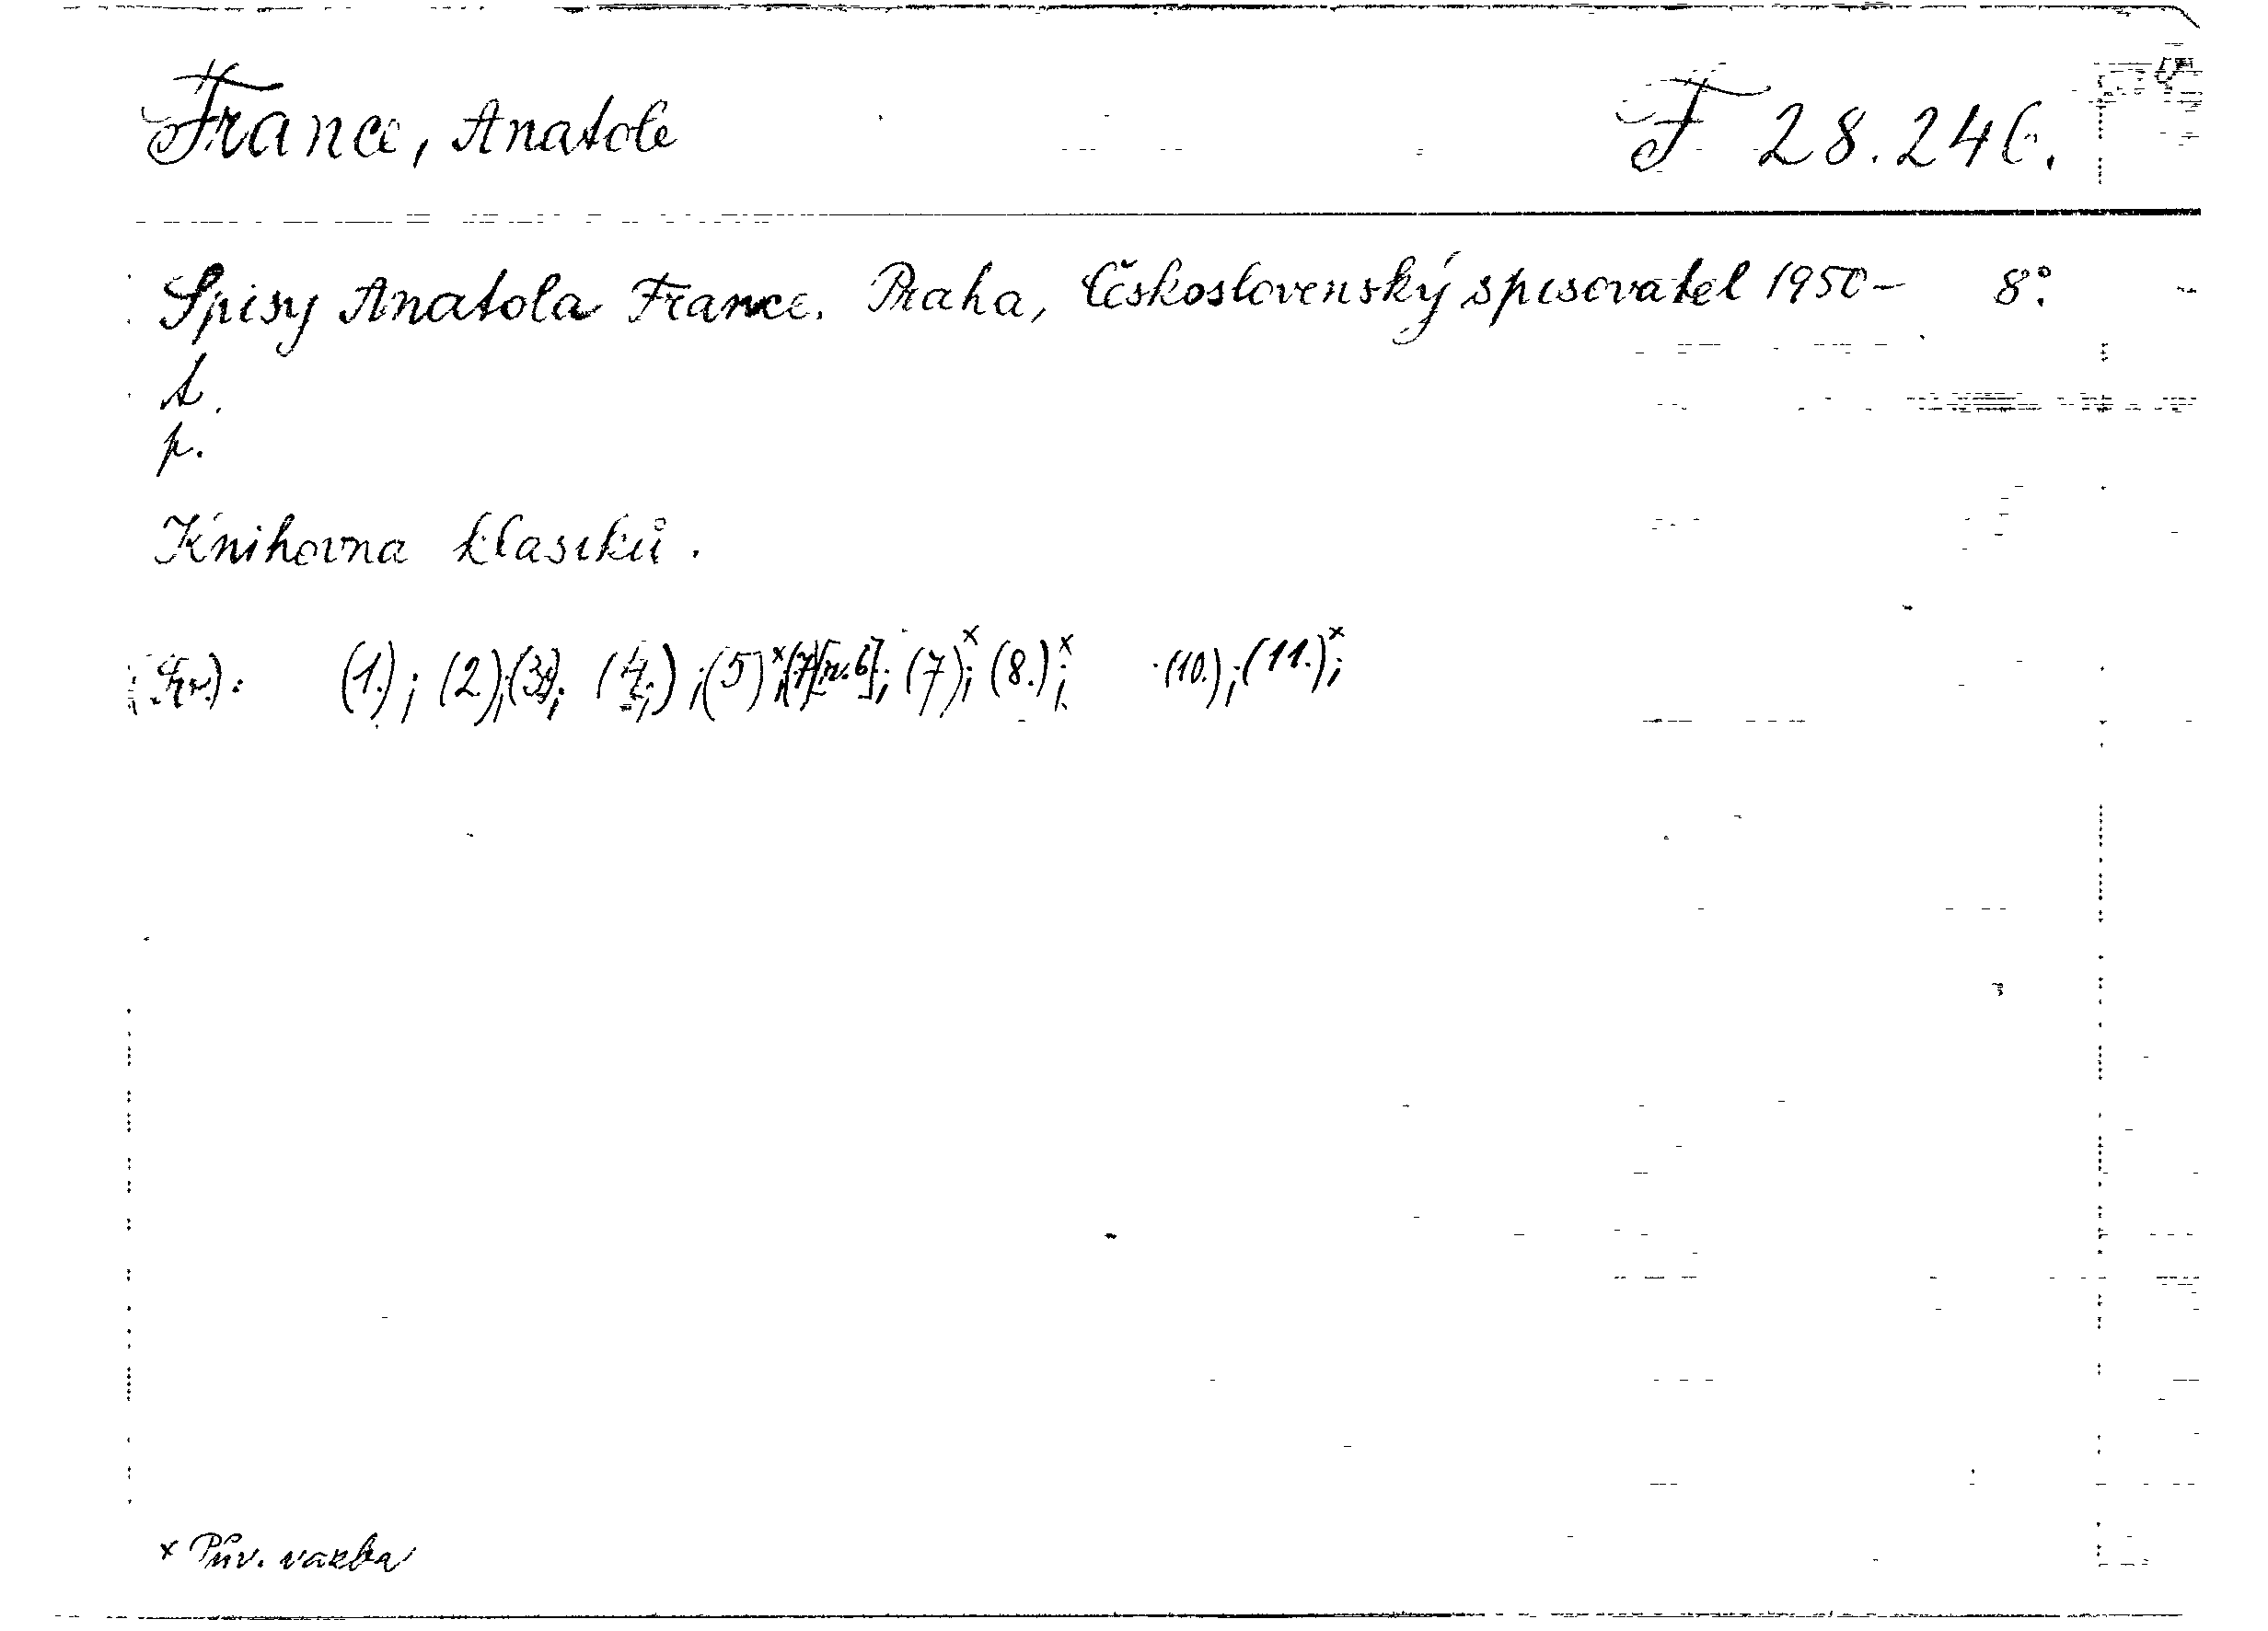 France, Anatole F 28.246.
Spisy Anatola France. Praha, Československý spisovatel 1950- 8°.
t.
p.
Knihovna klasiků.
(1.); (2.); (3.); (4.); (5)ˣ; (7)[n.6]; (7)ˣ; (8.)ˣ; (10.); (11.)ˣ;
x Pův. vazba